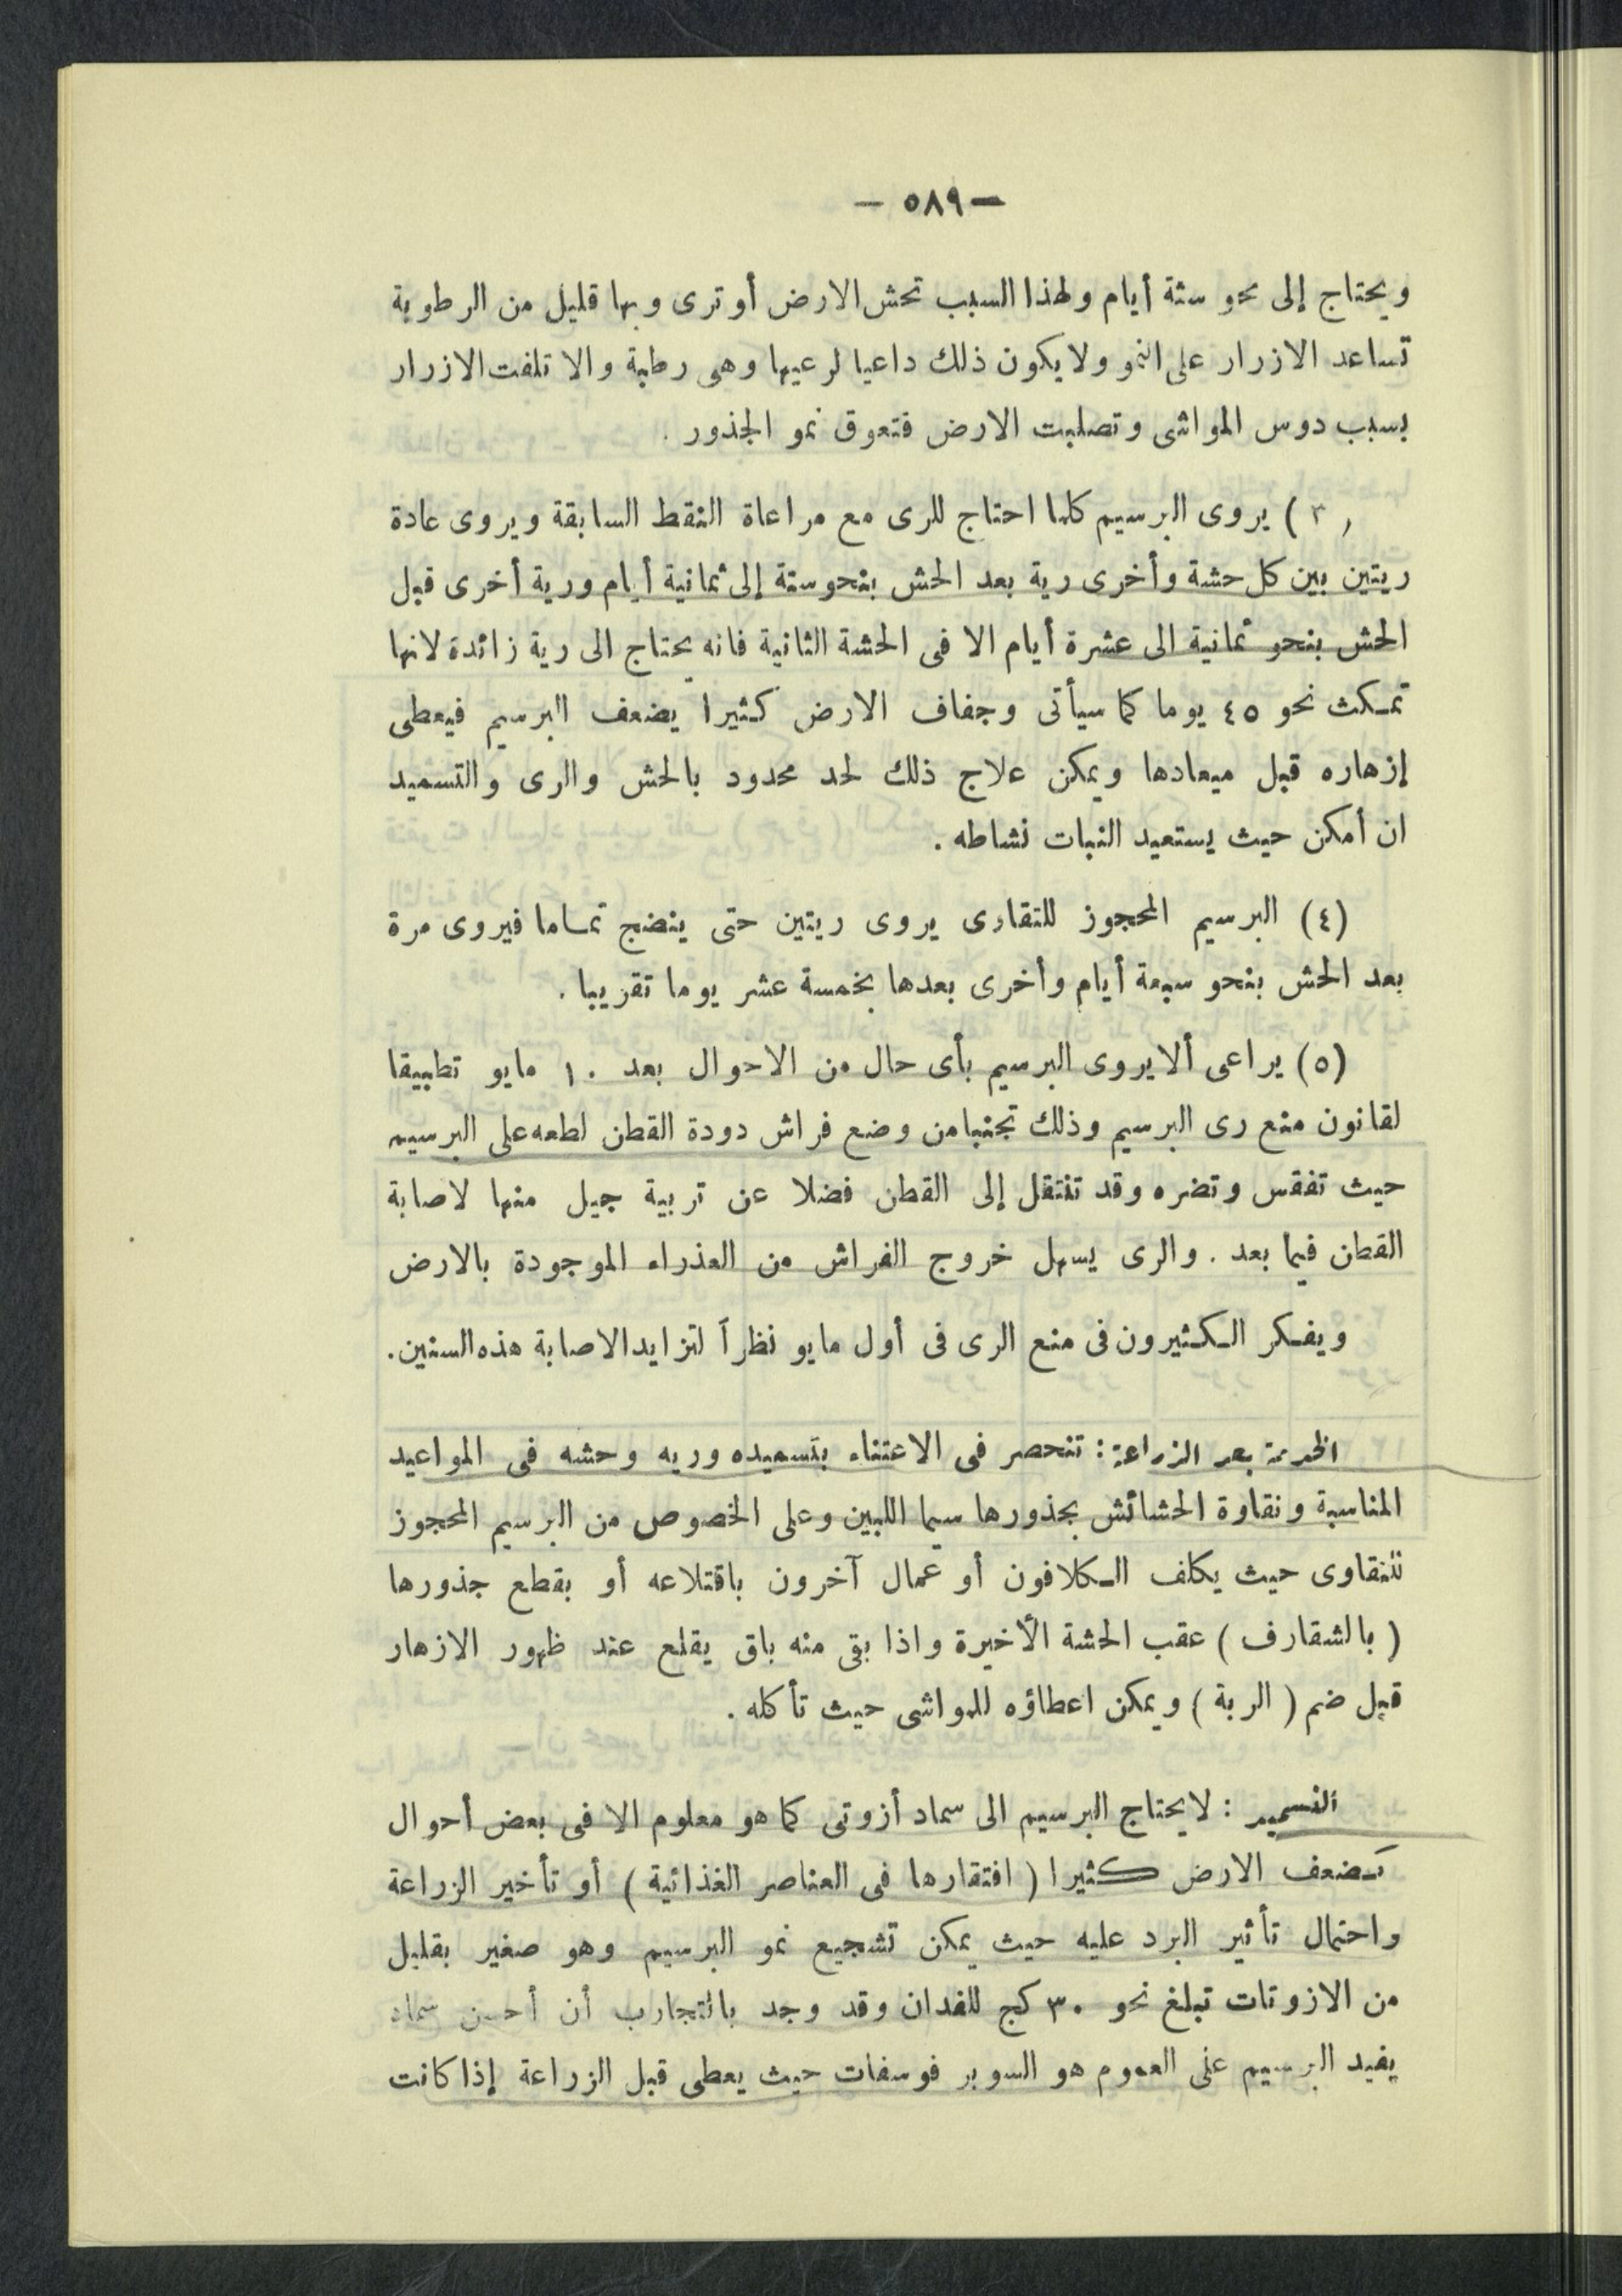 — ٥٨٩ —
ويحتاج إلى نحو ستة أيام ولهذا السبب تحش الارض أو ترى وبها قليل من الرطوبة
تساعد الازرار على النمو ولا يكون ذلك داعيا لرعيها وهى رطبة والا تلفت الازرار
بسبب دوس المواشى وتصلبت الارض فتعوق نمو الجذور .
(٣) يروى البرسيم كلما احتاج للرى مع مراعاة النقط السابقة ويروى عادة
ريتين بين كل حشة وأخرى رية بعد الحش بنحو ستة إلى ثمانية أيام ورية أخرى قبل
الحش بنحو ثمانية الى عشرة أيام الا فى الحشة الثانية فانه يحتاج الى رية زائدة لانها
تمكث نحو ٤٥ يوما كما سيأتى وجفاف الارض كثيرا يضعف البرسيم فيعطى
إزهاره قبل ميعادها ويمكن علاج ذلك لحد محدود بالحش والرى والتسميد
ان أمكن حيث يستعيد النبات نشاطه .
(٤) البرسيم المحجوز للتقاوى يروى ريتين حتى ينضج تماما فيروى مرة
بعد الحش بنحو سبعة أيام وأخرى بعدها بخمسة عشر يوما تقريبا .
(٥) يراعى ألا يروى البرسيم بأى حال من الاحوال بعد ١٠ مايو تطبيقا
لقانون منع رى البرسيم وذلك تجنبا من وضع فراش دودة القطن لطعه على البرسيم
حيث تفقس وتضره وقد تنتقل إلى القطن فضلا عن تربية جيل منها لاصابة
القطن فيما بعد . والرى يسهل خروج الفراش من العذراء الموجودة بالارض
ويفكر الكثيرون فى منع الرى فى أول مايو نظراً لتزايد الاصابة هذه السنين .
الخدمة بعد الزراعة : تنحصر فى الاعتناء بتسميده وريه وحشه فى المواعيد
المناسبة ونقاوة الحشائش بجذورها سيما اللبين وعلى الخصوص من البرسيم المحجوز
للتقاوى حيث يكلف الكلافون أو عمال آخرون باقتلاعه أو بقطع جذورها
( بالشقارف ) عقب الحشة الأخيرة واذا بقى منه باق يقلع عند ظهور الازهار
قبل ضم ( الربة ) ويمكن اعطاؤه للمواشى حيث تأكله .
التسميد : لا يحتاج البرسيم الى سماد أزوتى كما هو معلوم الا فى بعض أحوال
كضعف الارض كثيرا ( افتقارها فى العناصر الغذائية ) أو تأخير الزراعة
واحتمال تأثير البرد عليه حيث يمكن تشجيع نمو البرسيم وهو صغير بقليل
من الازوتات تبلغ نحو ٣٠ كج للفدان وقد وجد بالتجارب أن أحسن سماد
يفيد البرسيم على العموم هو السوبر فوسفات حيث يعطى قبل الزراعة إذا كانت